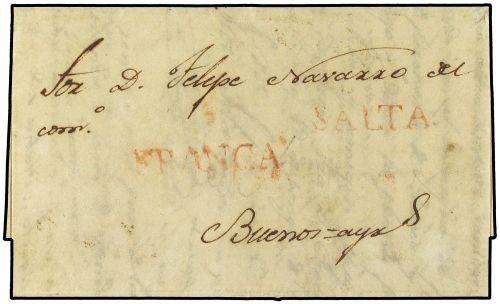 Sor D. Felipe Navarro del
com.º
SALTA
FRANCA
Buenos-ayrs